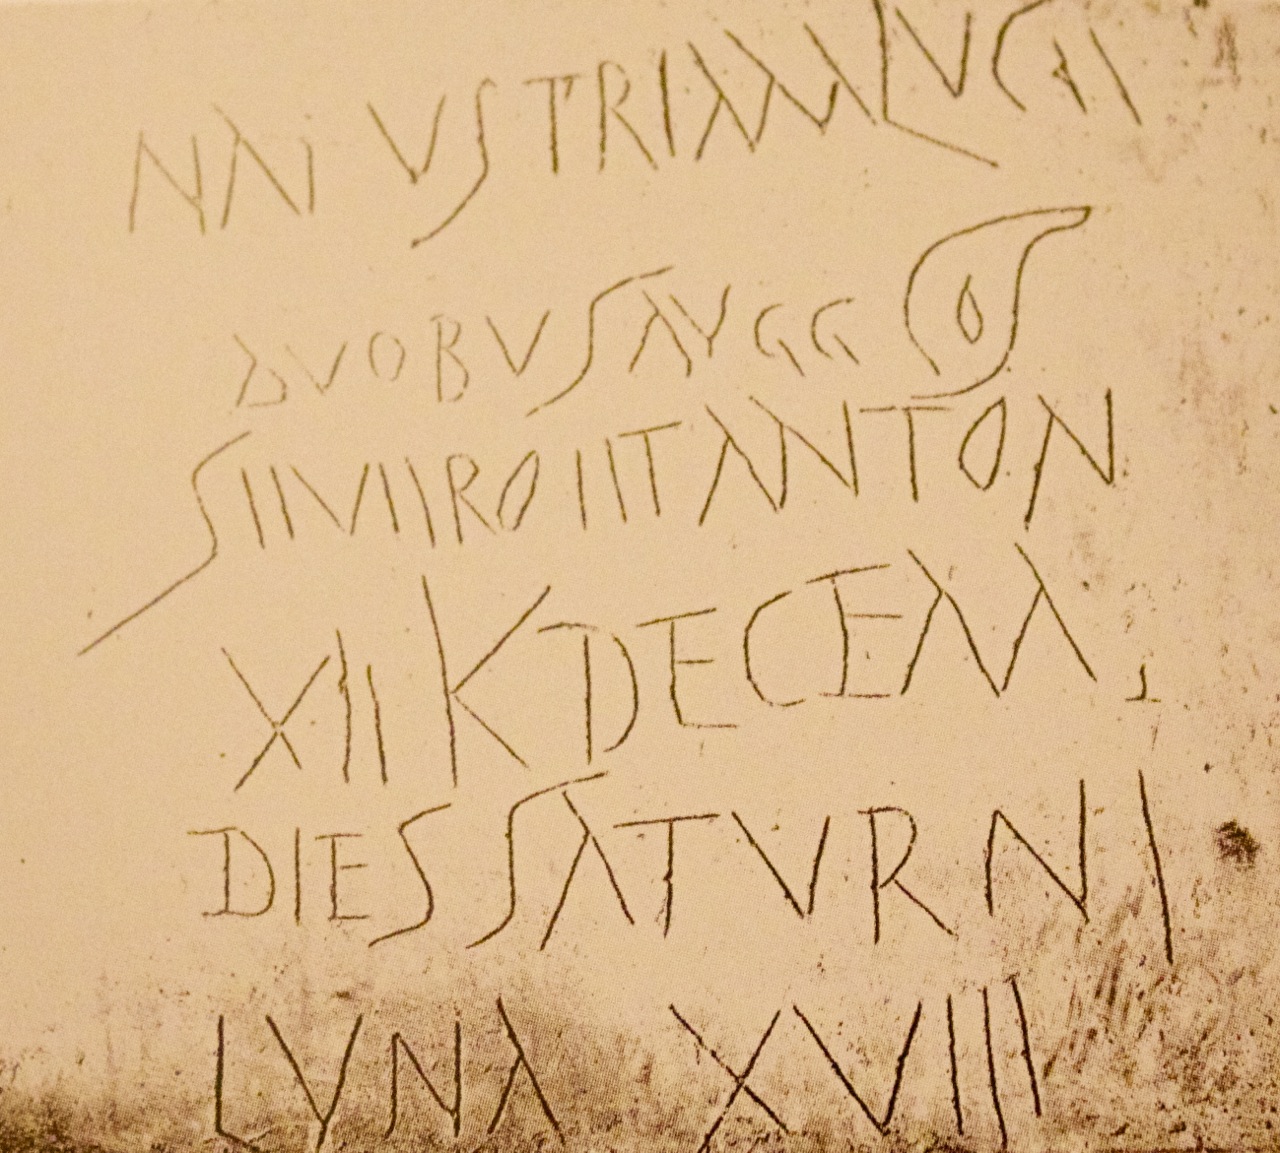 NATVS PRIMA LVCE
DVOBVS AVGG COS
SEVERO ET ANTON
XII K DECEM
DIES SATVRNI
LVNA XVIII